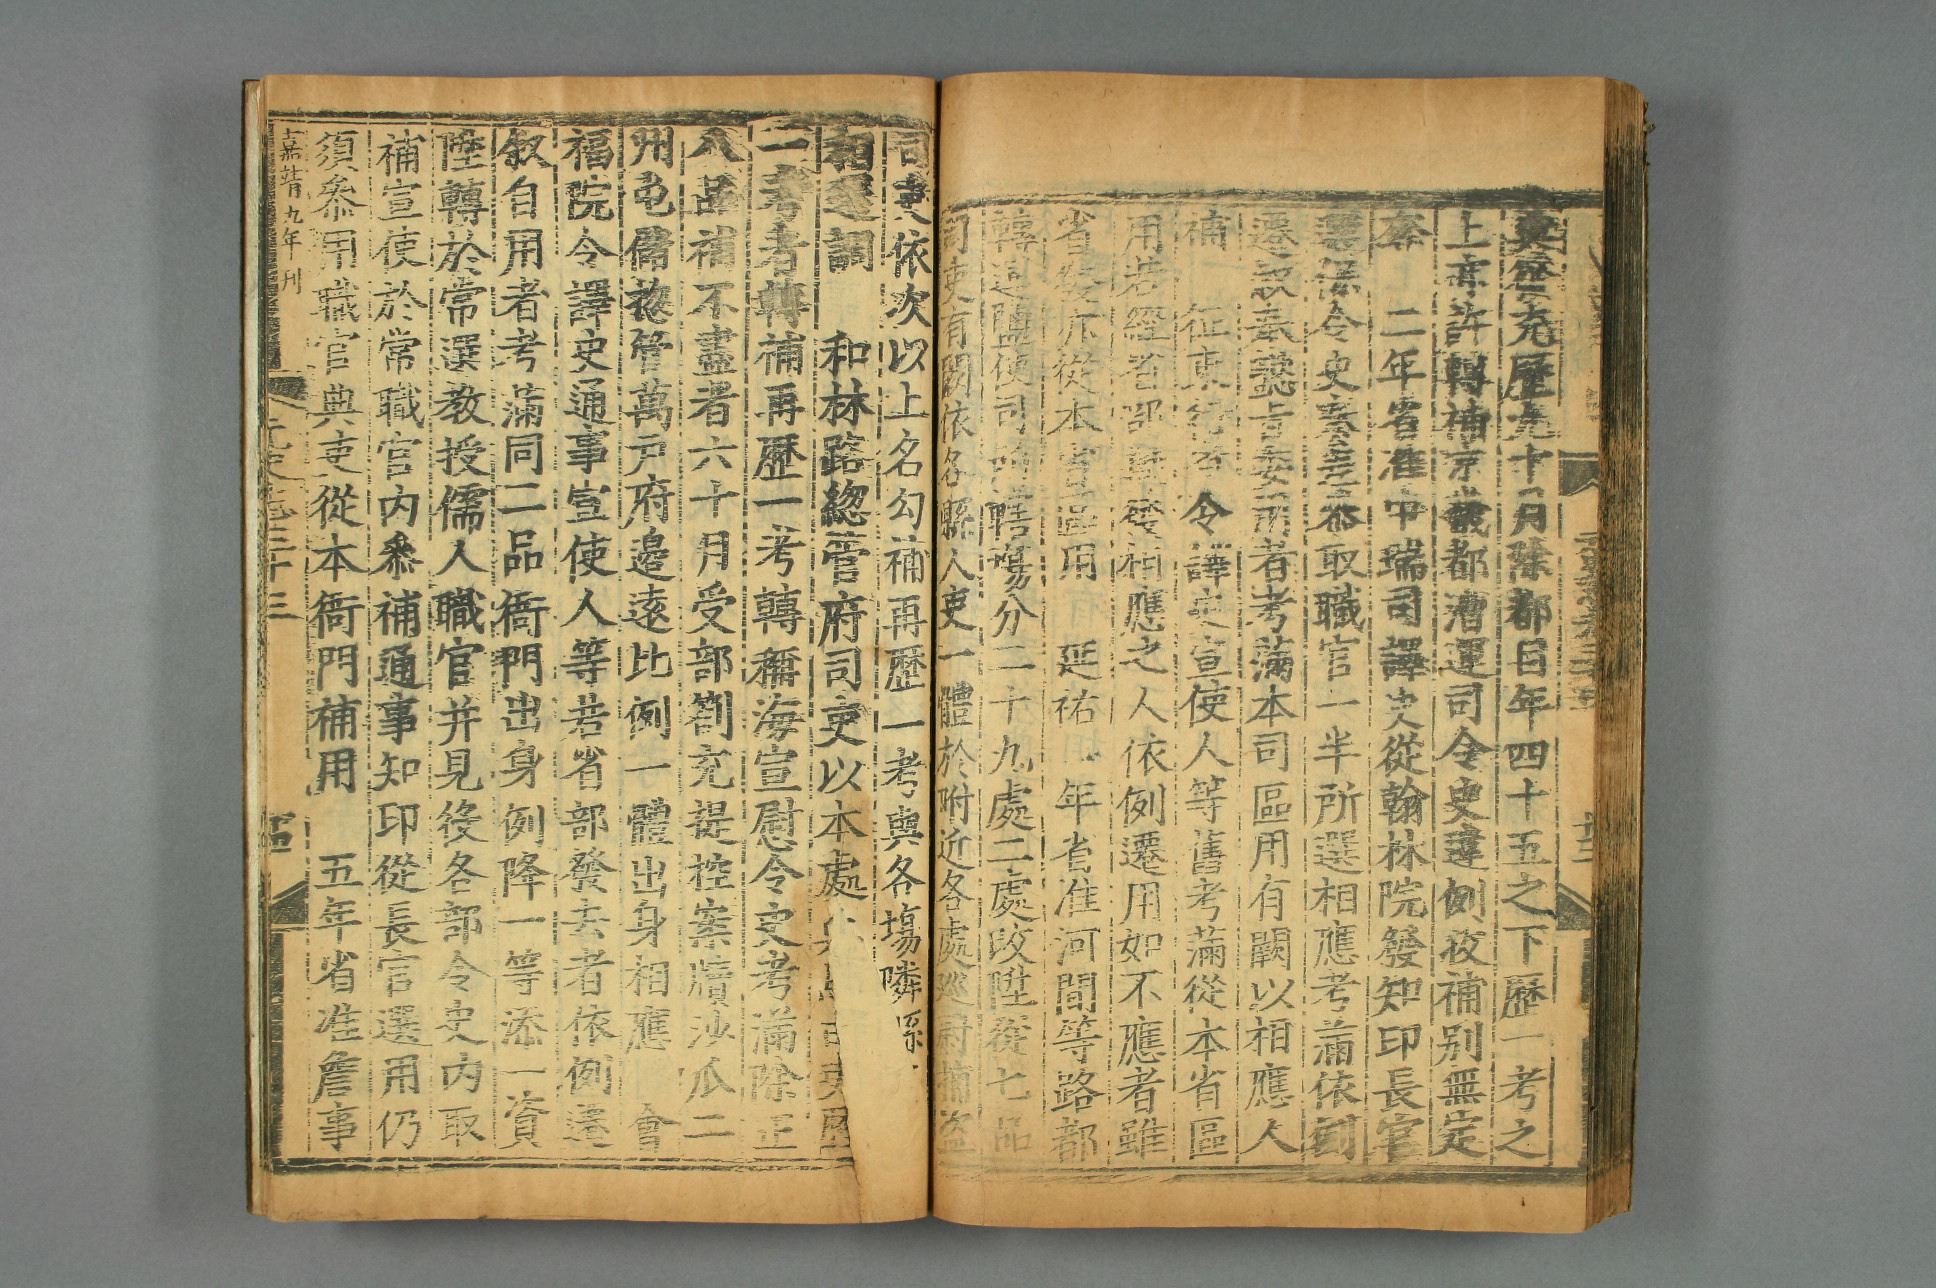 充歷九十月除都目年四十五之下歷一考之
上亦許轉補京畿都漕運司令史違例收補別無定
奪 二年省准中瑞司譯史從翰林院發知印長官
選保令史奏差部取職官一半所選相應考滿依例
遷敘奏差懿旨委用者考滿本司區用有闕以相應人
補 征東行省令譯史宣使人等舊考滿從本省區
用若經省部擬發相應之人依例遷用如不應者雖
省發亦從本省區用 延祐 年省准河間等路都
轉運鹽使司所轄場分二十九處二處改陞從七品
司吏有闕依各縣人吏一體於附近各處巡尉捕盜
司吏依次以上名勾補再歷一考與各場隣縣
相遷調 和林路總管府司吏以本處 司吏歷
一考者轉補再歷一考轉稱海宣慰令史考滿除正
八品補不盡者六十月受部劄充提控案牘沙瓜二
州屯儲總管萬戶府邊遠比例一體出身相應 會
福院令譯史通事宣使人等若省部發去者依例遷
敘自用者考滿同二品衙門出身例降一等添一資
陞轉於常選教授儒人職官并見役各部令史內取
補宣使於常職官內叅補通事知印從長官選用仍
須叅用職官典吏從本衙門補用 五年省准詹事
嘉靖九年刊
元史志三十三